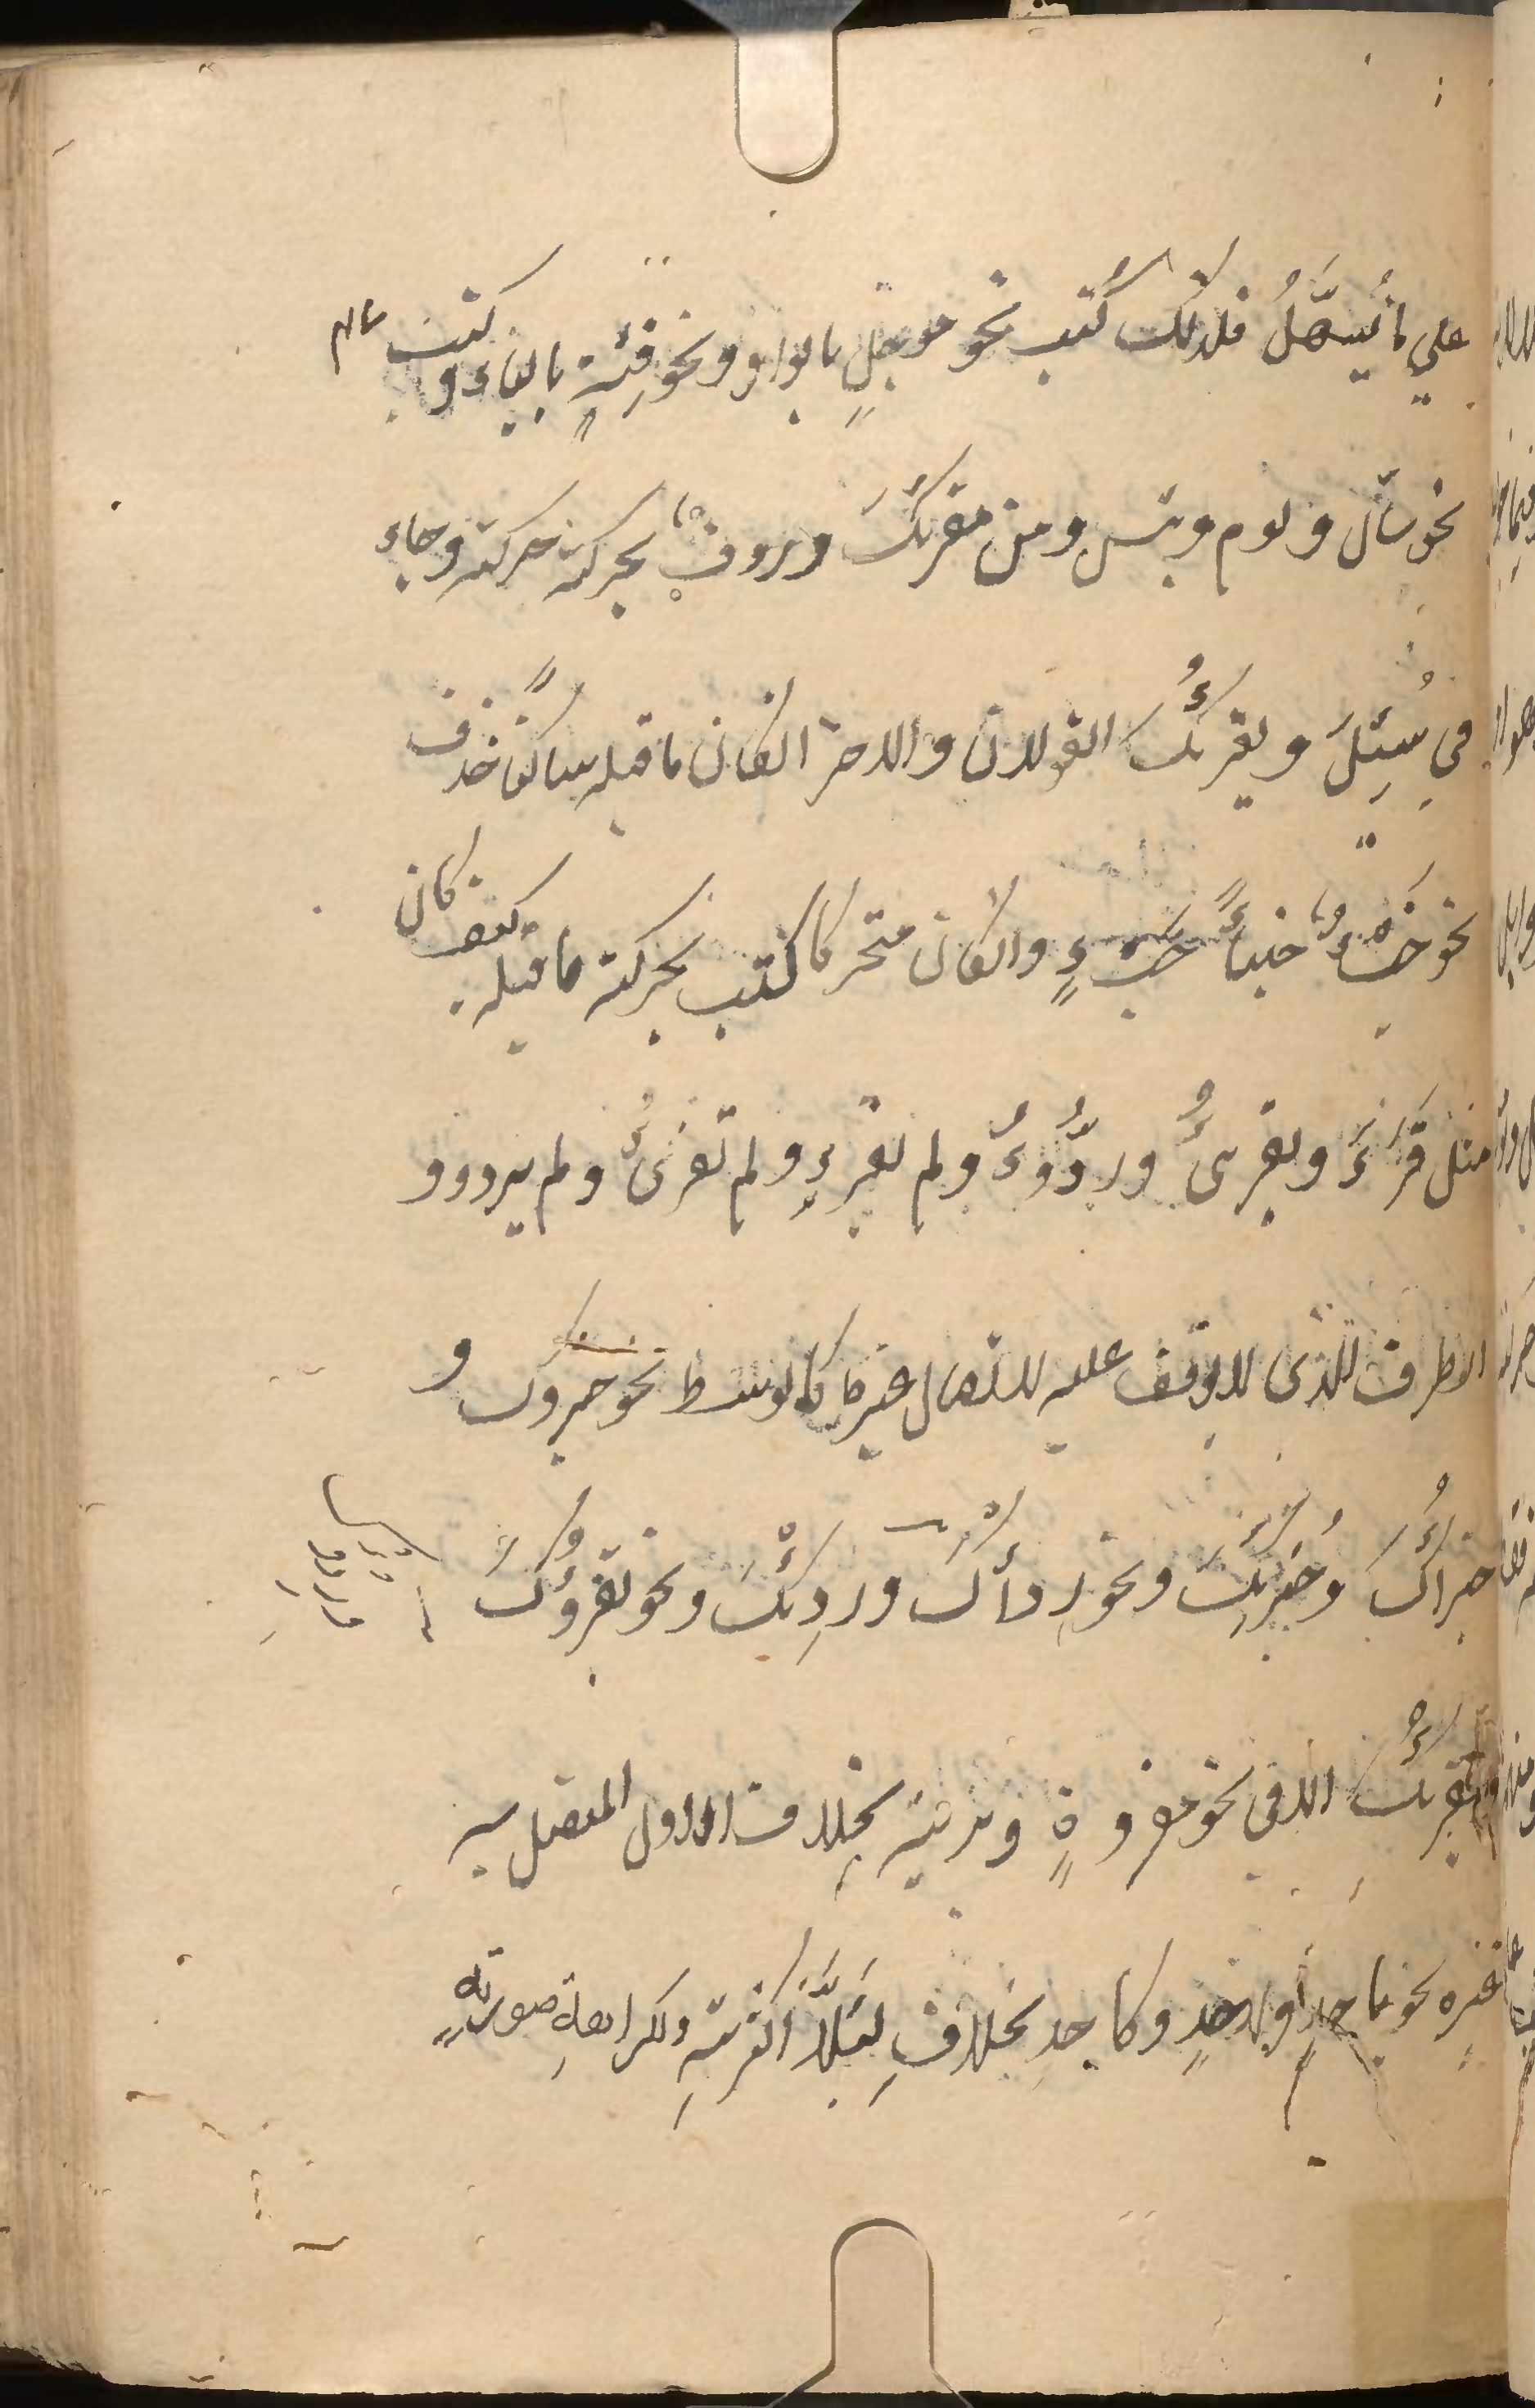 علي ما يُسهَّلُ فلذلك كُتب نحو موجلٍ بالواو ونحو فِئَةٍ بالياء وكتب
نحو سأل ولوم وبئس ومن مقرئكَ وروفٌ بحركته حركته وجاء
في سُئِلَ ويقرئُكَ القولان والاخر ان كان ما قبله ساكنًا حذف
نحو خبْءٌ خبئًا خبْءٍ وان كان متحركا كتب بحركة ما قبله كيف كان
مثل قَرَءَ ويقرئُ وردُوءَ ولم يقرءِ ولم تقرئُ ولم يردوو
الطرف الذى لا يوقف عليه لاتصال غيره كالوسط نحو جزوك و
جزأُكَ وجُزئِكَ ونحو ردأُك وردِئكَ ونحو يقرؤُكَ
ويقرئُكَ الا في نحو مقروةٍ وبريّة بخلاف الاول المتصل به
غيرِه نحو باحدٍ أو لاحدٍ وكاحدٍ بخلافِ لِئَلَّا لكثرتهِ ولكراهةِ صورتهِ